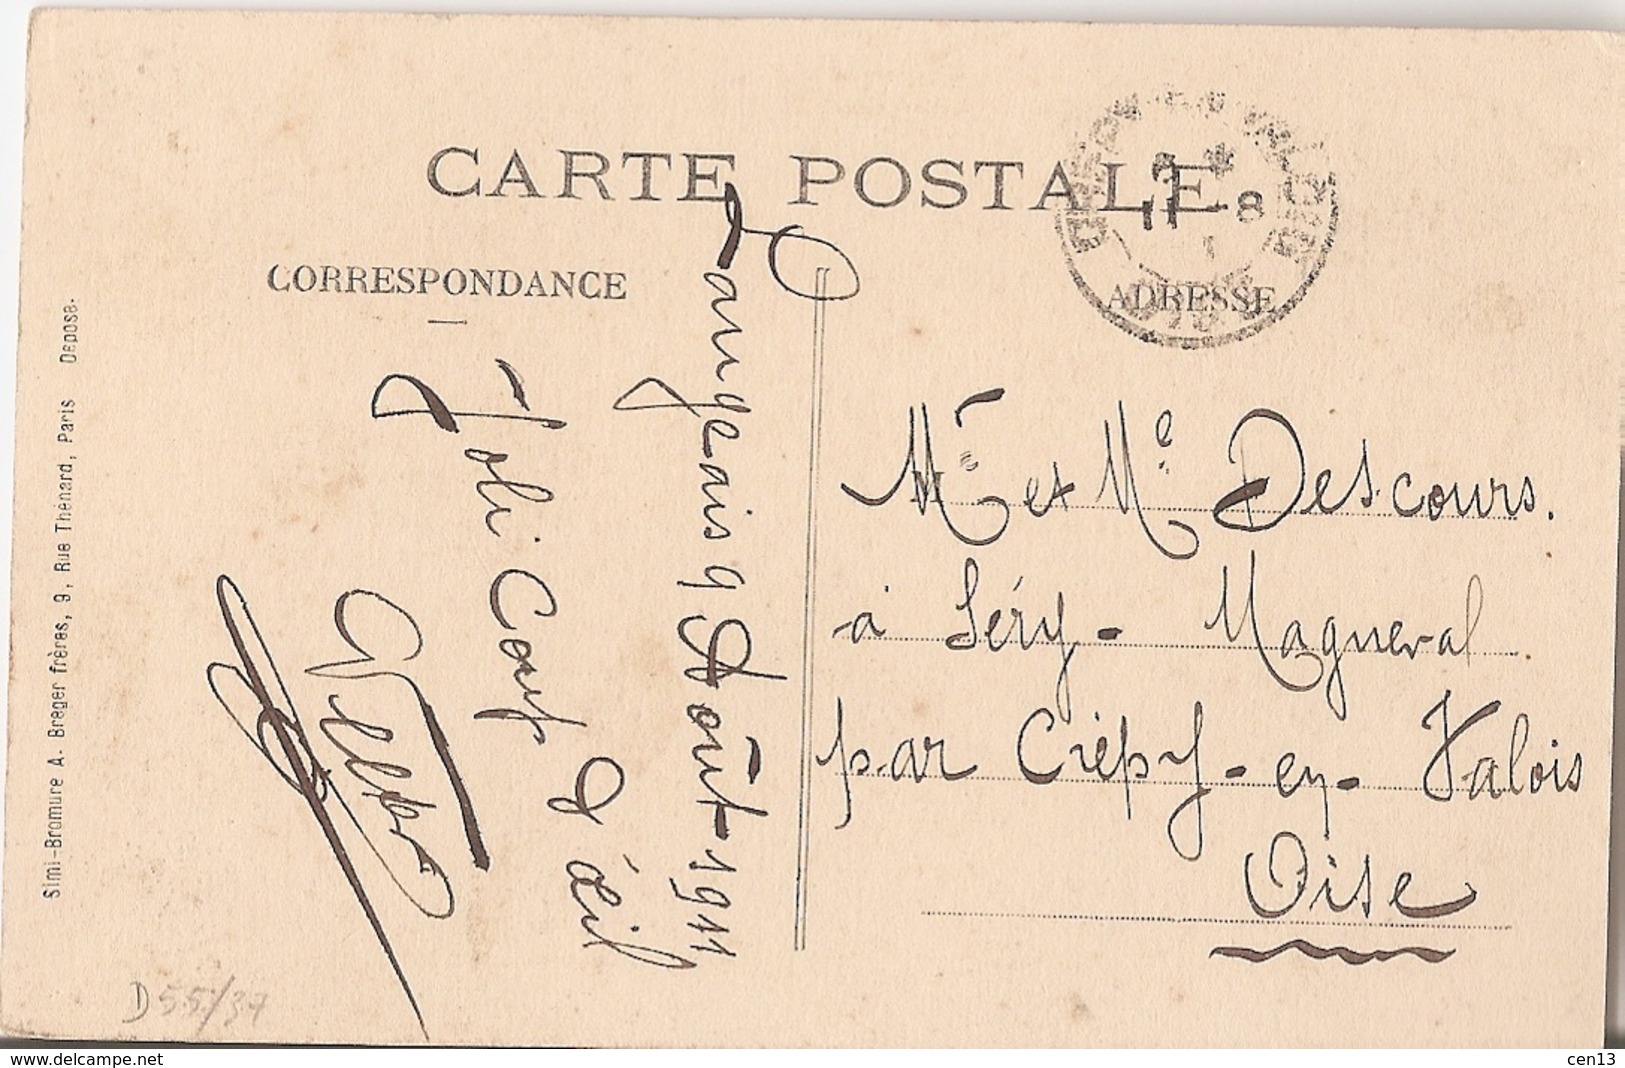 CARTE POSTALE
CORRESPONDANCE
Langeais 9 Août 1911
Joli Coup
d'œil
ADRESSE
11 - 8
Mr et Me Descours.
à Séry - Magneval
par Crépy - en - Valois
Oise
Simi-Bromure A. Breger frères, 9, Rue Thénard, Paris Déposé.
D 55/37
www.delcampe.net
cen13